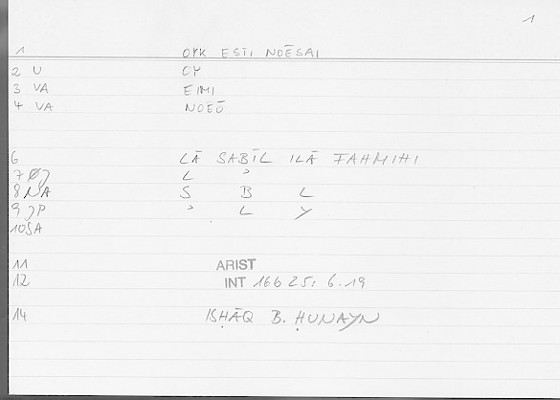 1
1 OYK ESTI NOĒSAI
2 U OY
3 VA EIMI
4 VA NOEŌ
6 LĀ SABĪL ILĀ FAHMIHI
7 L ʾ
8 NA S B L
9 JP ʾ L Y
10 SA
11 ARIST
12 INT 16b 25; 6.19
14 ISḤĀQ B. ḤUNAYN